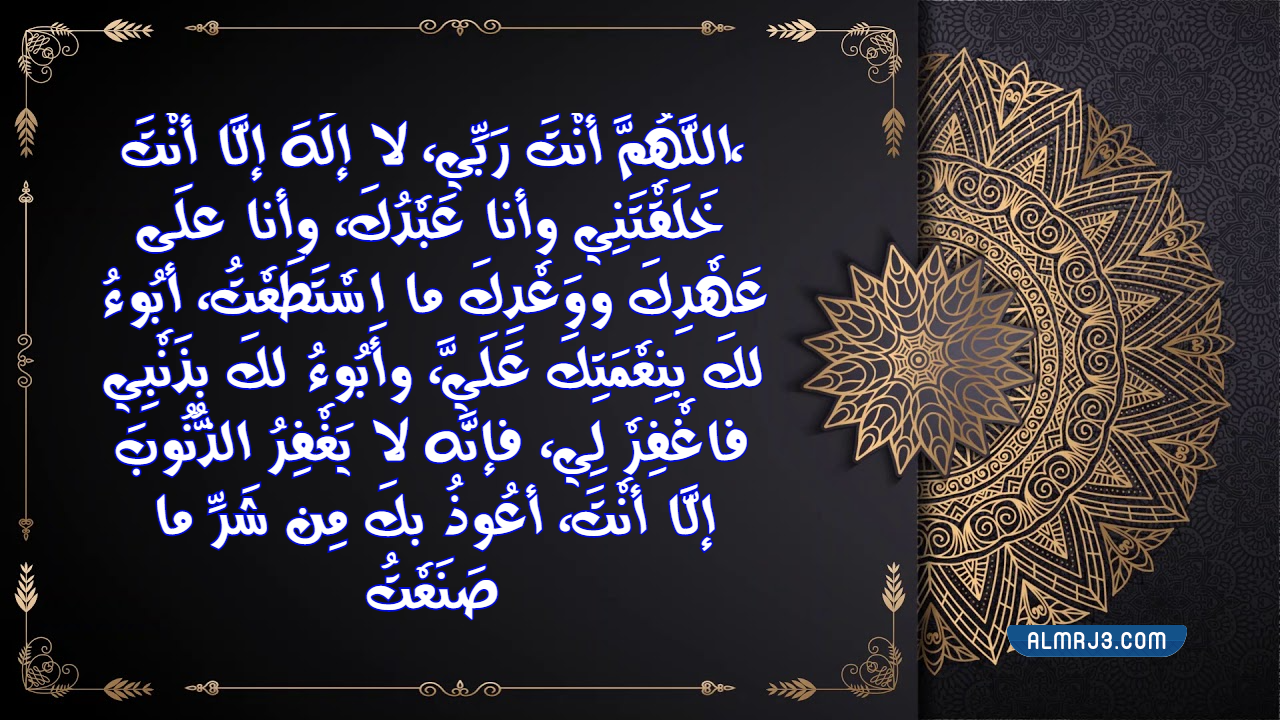 ،اللَّهُمَّ أنْتَ رَبِّي، لا إلَهَ إلَّا أنْتَ
خَلَقْتَنِي وأنا عَبْدُكَ، وأنا علَى
عَهْدِكَ ووَعْدِكَ ما اسْتَطَعْتُ، أبُوءُ
لكَ بنِعْمَتِك عَلَيَّ، وأَبُوءُ لكَ بذَنْبِي
فاغْفِرْ لِي، فإنَّه لا يَغْفِرُ الذُّنُوبَ
إلَّا أنْتَ، أعُوذُ بكَ مِن شَرِّ ما
صَنَعْتُ
ALMRJ3.COM